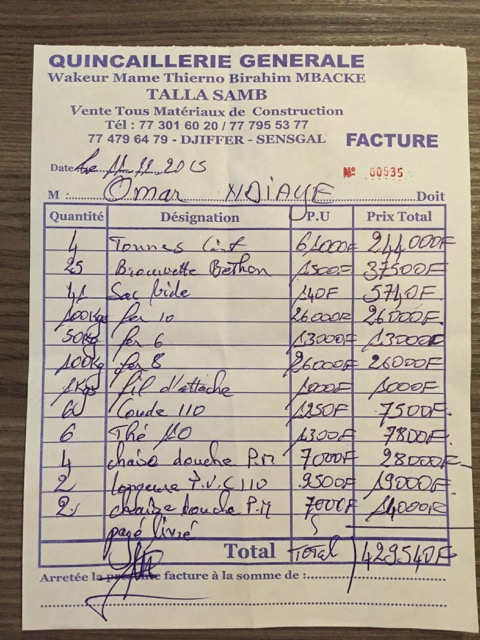 QUINCAILLERIE GENERALE
Wakeur Mame Thierno Birahim MBACKE
TALLA SAMB
Vente Tous Matériaux de Construction
Tél : 77 301 60 20 / 77 795 53 77
77 479 64 79 - DJIFFER - SENSGAL
FACTURE
Date Le 11.11.2015
N° 00535
M : Omar NDIAYE Doit
Quantité Désignation P.U Prix Total
4 Tonnes Cist 61000F 244000F
25 Brouvette Bethon 1500F 37500F
41 Sac vide 140F 5740F
100kg fer 10 26000F 26000F
50kg fer 6 13000F 13000F
100kg fer 8 26000F 26000F
1kgs fil d'attache 1000F 1000F
6 Coude 110 1250F 7500F
6 Thé 110 1300F 7800F
4 chaise douche P.M 7000F 28000F
2 longeure P.V.C 110 9500F 19000F
2 chaise douche P.M 7000F 14000F
payé livré
Total Total 429540F
Arretée la présente facture à la somme de :